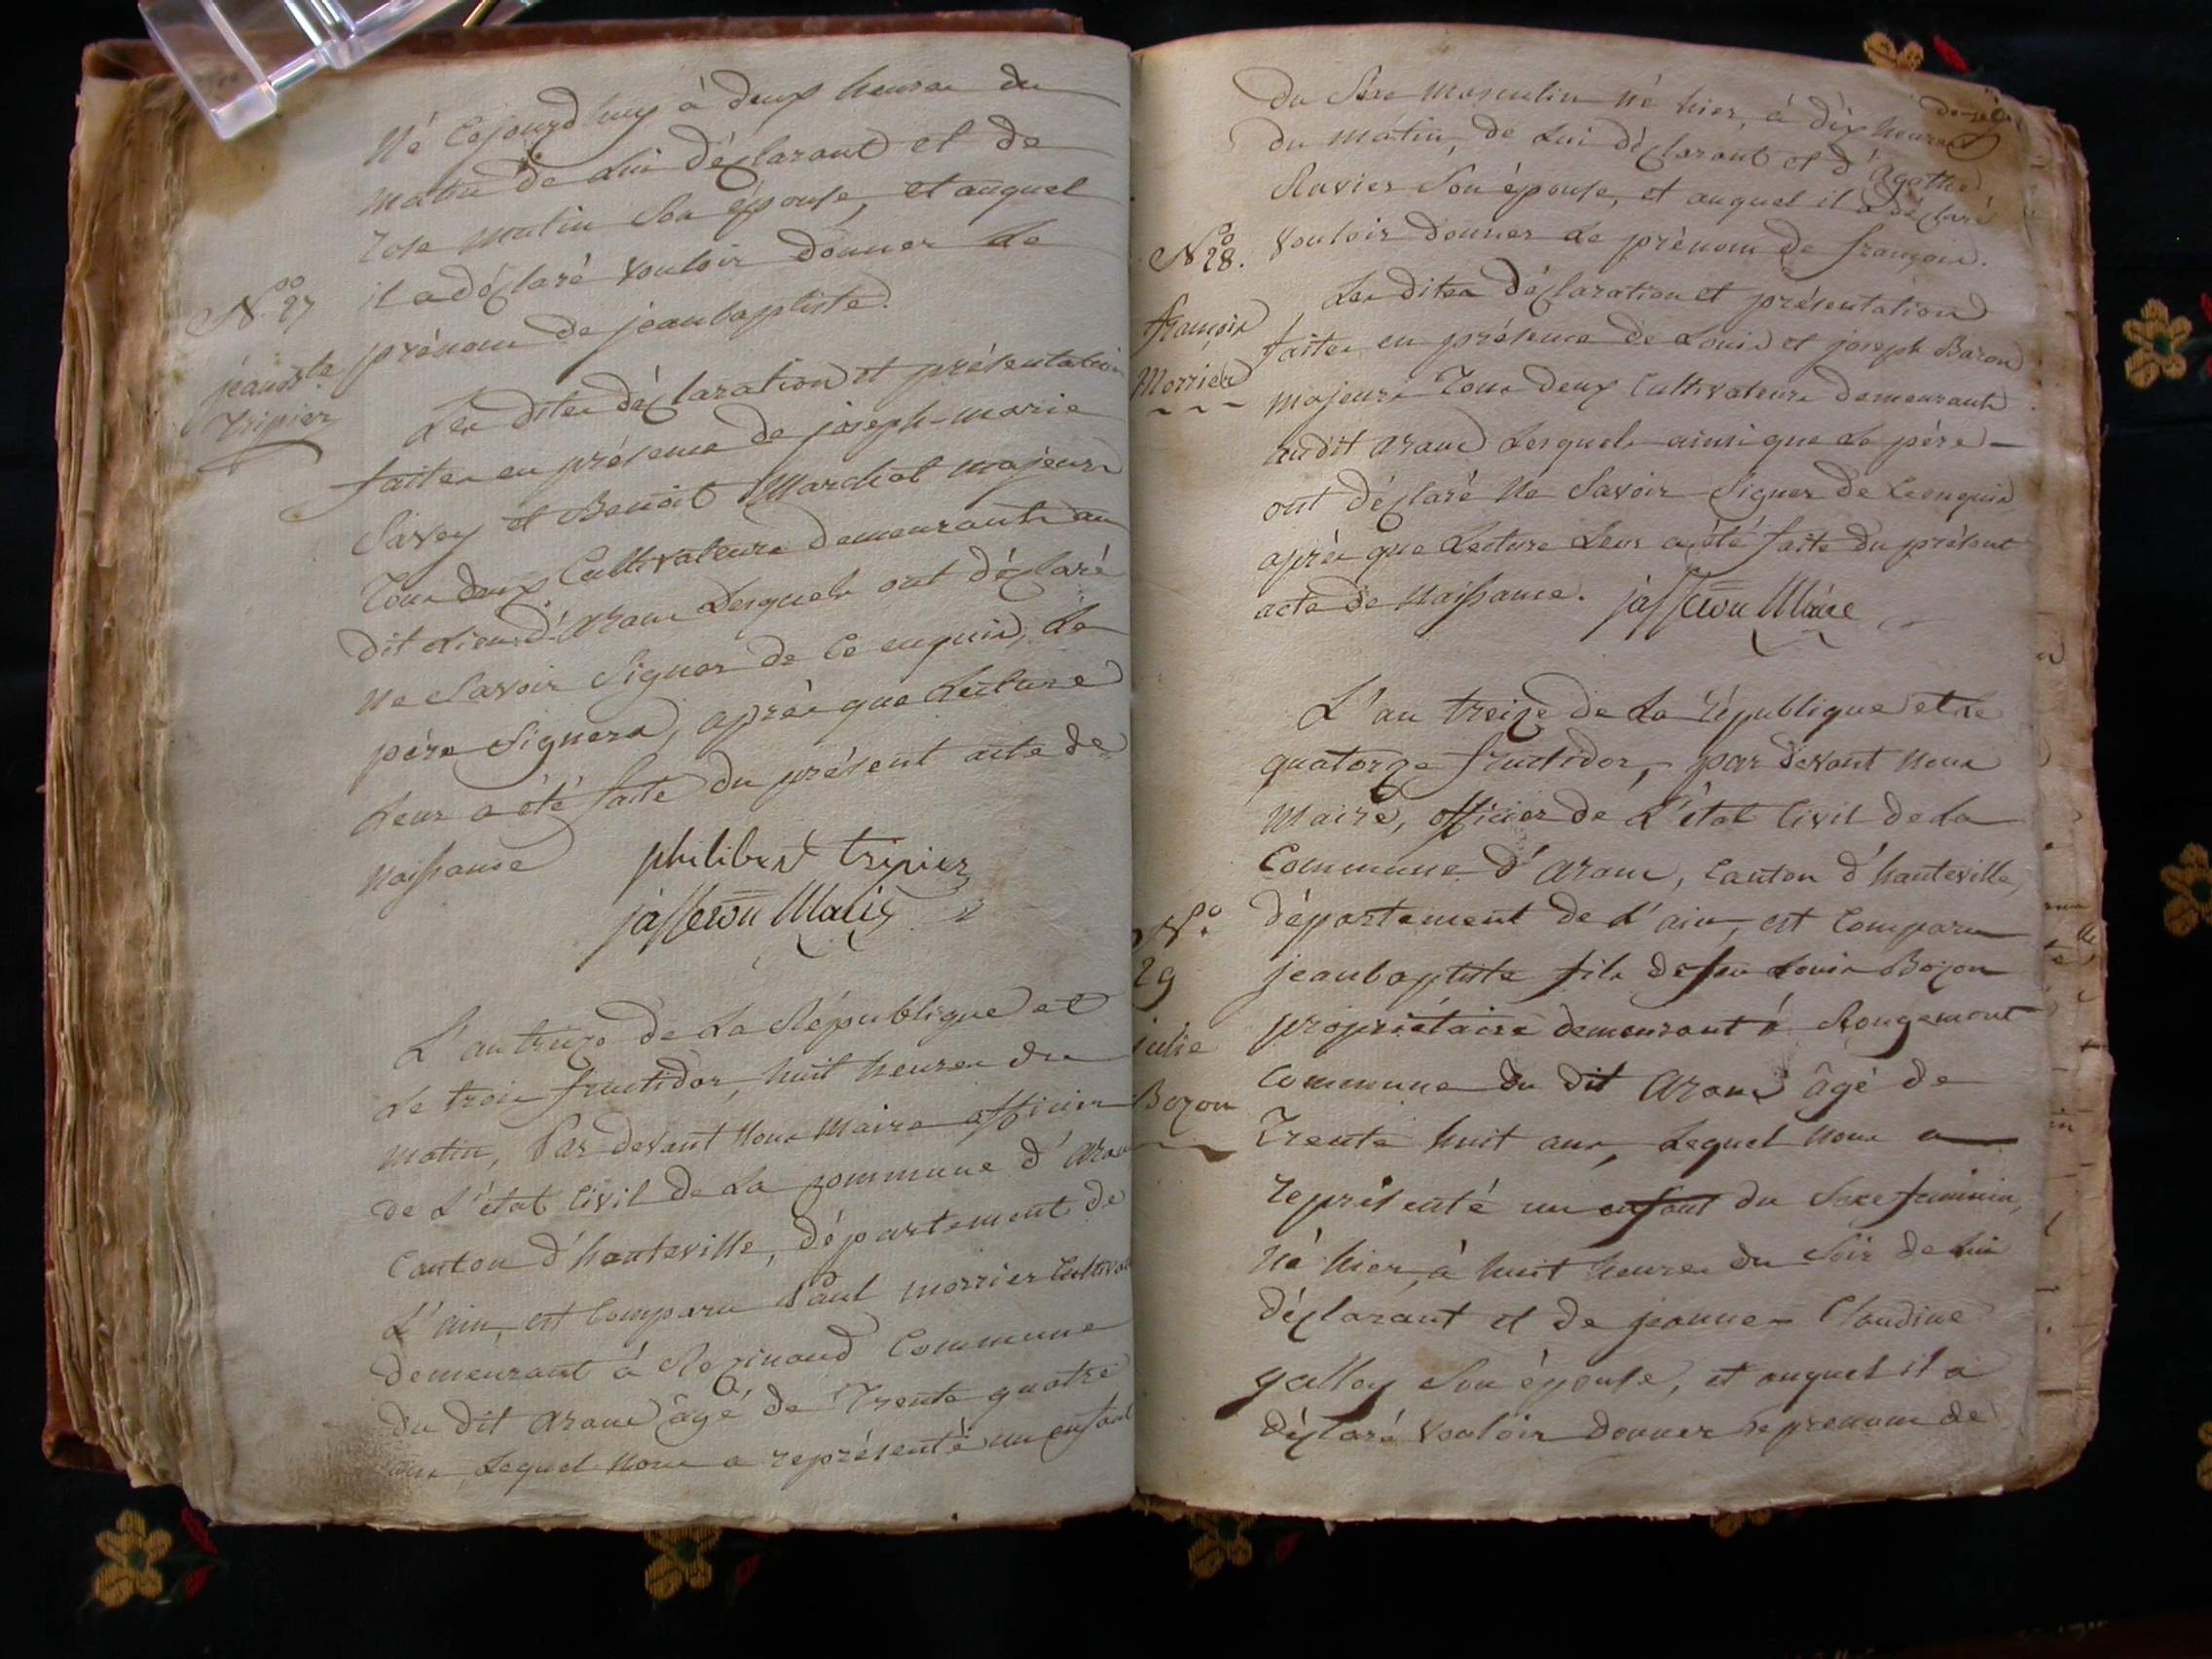 Né Cejourd'huy à deux heures du
matin de Lui déclarant et de
Rose Mutin Son épouse, et auquel
il a déclaré vouloir donner Le
prénom de jean baptiste.
N.° 27
jean bte
Tripier
Les dites déclaration et présentation
faites en présence de joseph-marie
Savey et Benoît Marchot majeurs
Tous deux Cultivateurs demeurants au
dit Lieu d'Aranc Lesquels ont déclaré
ne Savoir Signer de Ce enquis, Le
père Signera, après que Lecture
Leur a été faite du présent acte de
naissance
philibert tripier
jasseron Maire
L'an treize de La République et
Le trois fructidor, huit heures du
matin, Par devant Nous Maire officier
de L'état Civil de La commune d'Aranc
Canton d'hauteville, département de
L'ain, est Comparu Paul morrier
demeurant à Rezinand Commune
du dit Aranc âgé de Trente quatre
ans, Lequel Nous a représenté un enfant
du Sexe Masculin né hier, à dix heures
du matin, de Lui déclarant et d'Agathe
Ravier Son épouse, et auquel il a déclaré
vouloir donner Le prénom de françois.
N.° 28.
françois
Morrier
Les dites déclaration et présentation
faites en présence de Louis et joseph Baron
majeurs Tous deux Cultivateurs demeurants
audit Aranc Lesquels ainsi que Le père
ont déclaré Ne Savoir Signer de Ce enquis
après que Lecture Leur a été faite du présent
acte de Naissance. jasseron Maire
L'an treize de La République et Le
quatorze fructidor, par devant Nous
Maire, officier de L'état Civil de La
Commune d'Aranc, Canton d'hauteville,
département de L'ain, est Comparu
N.°
29
julie
Bozon
jean baptiste fils de feu Louis Bozon
propriétaire demeurant à Rougemont
Commune du dit Aranc âgé de
Trente huit ans, Lequel Nous a
représenté un enfant du Sexe féminin,
Né hier, à huit heures du Soir de Lui
déclarant et de jeanne-Claudine
galley Son épouse, et auquel il a
déclaré vouloir donner le prenom de